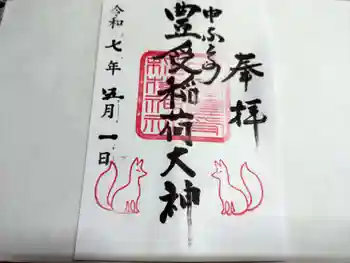 奉拝
中ふくろ
豊受稲荷大神
令和七年五月一日